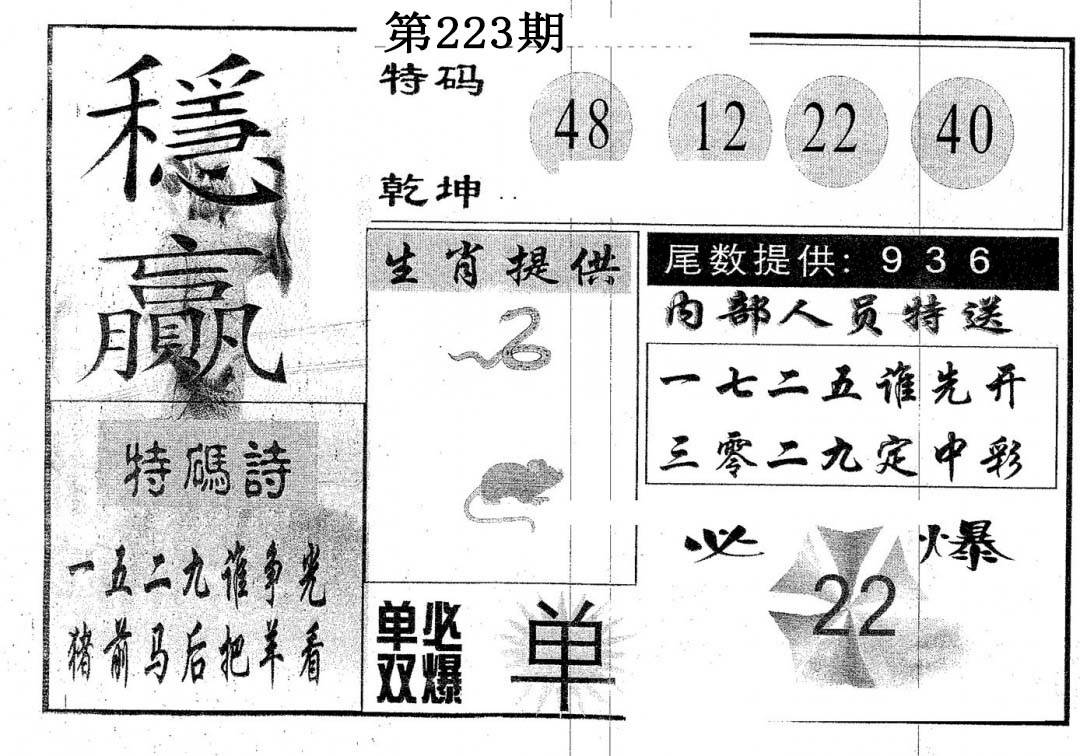 第223期
穩
赢
特码
乾坤
48 12 22 40
生肖提供
尾数提供: 9 3 6
内部人员特送
一七二五谁先开
三零二九定中彩
特碼詩
一五二九谁争光
猪前马后把羊看
单双
必爆
单
必 22 爆